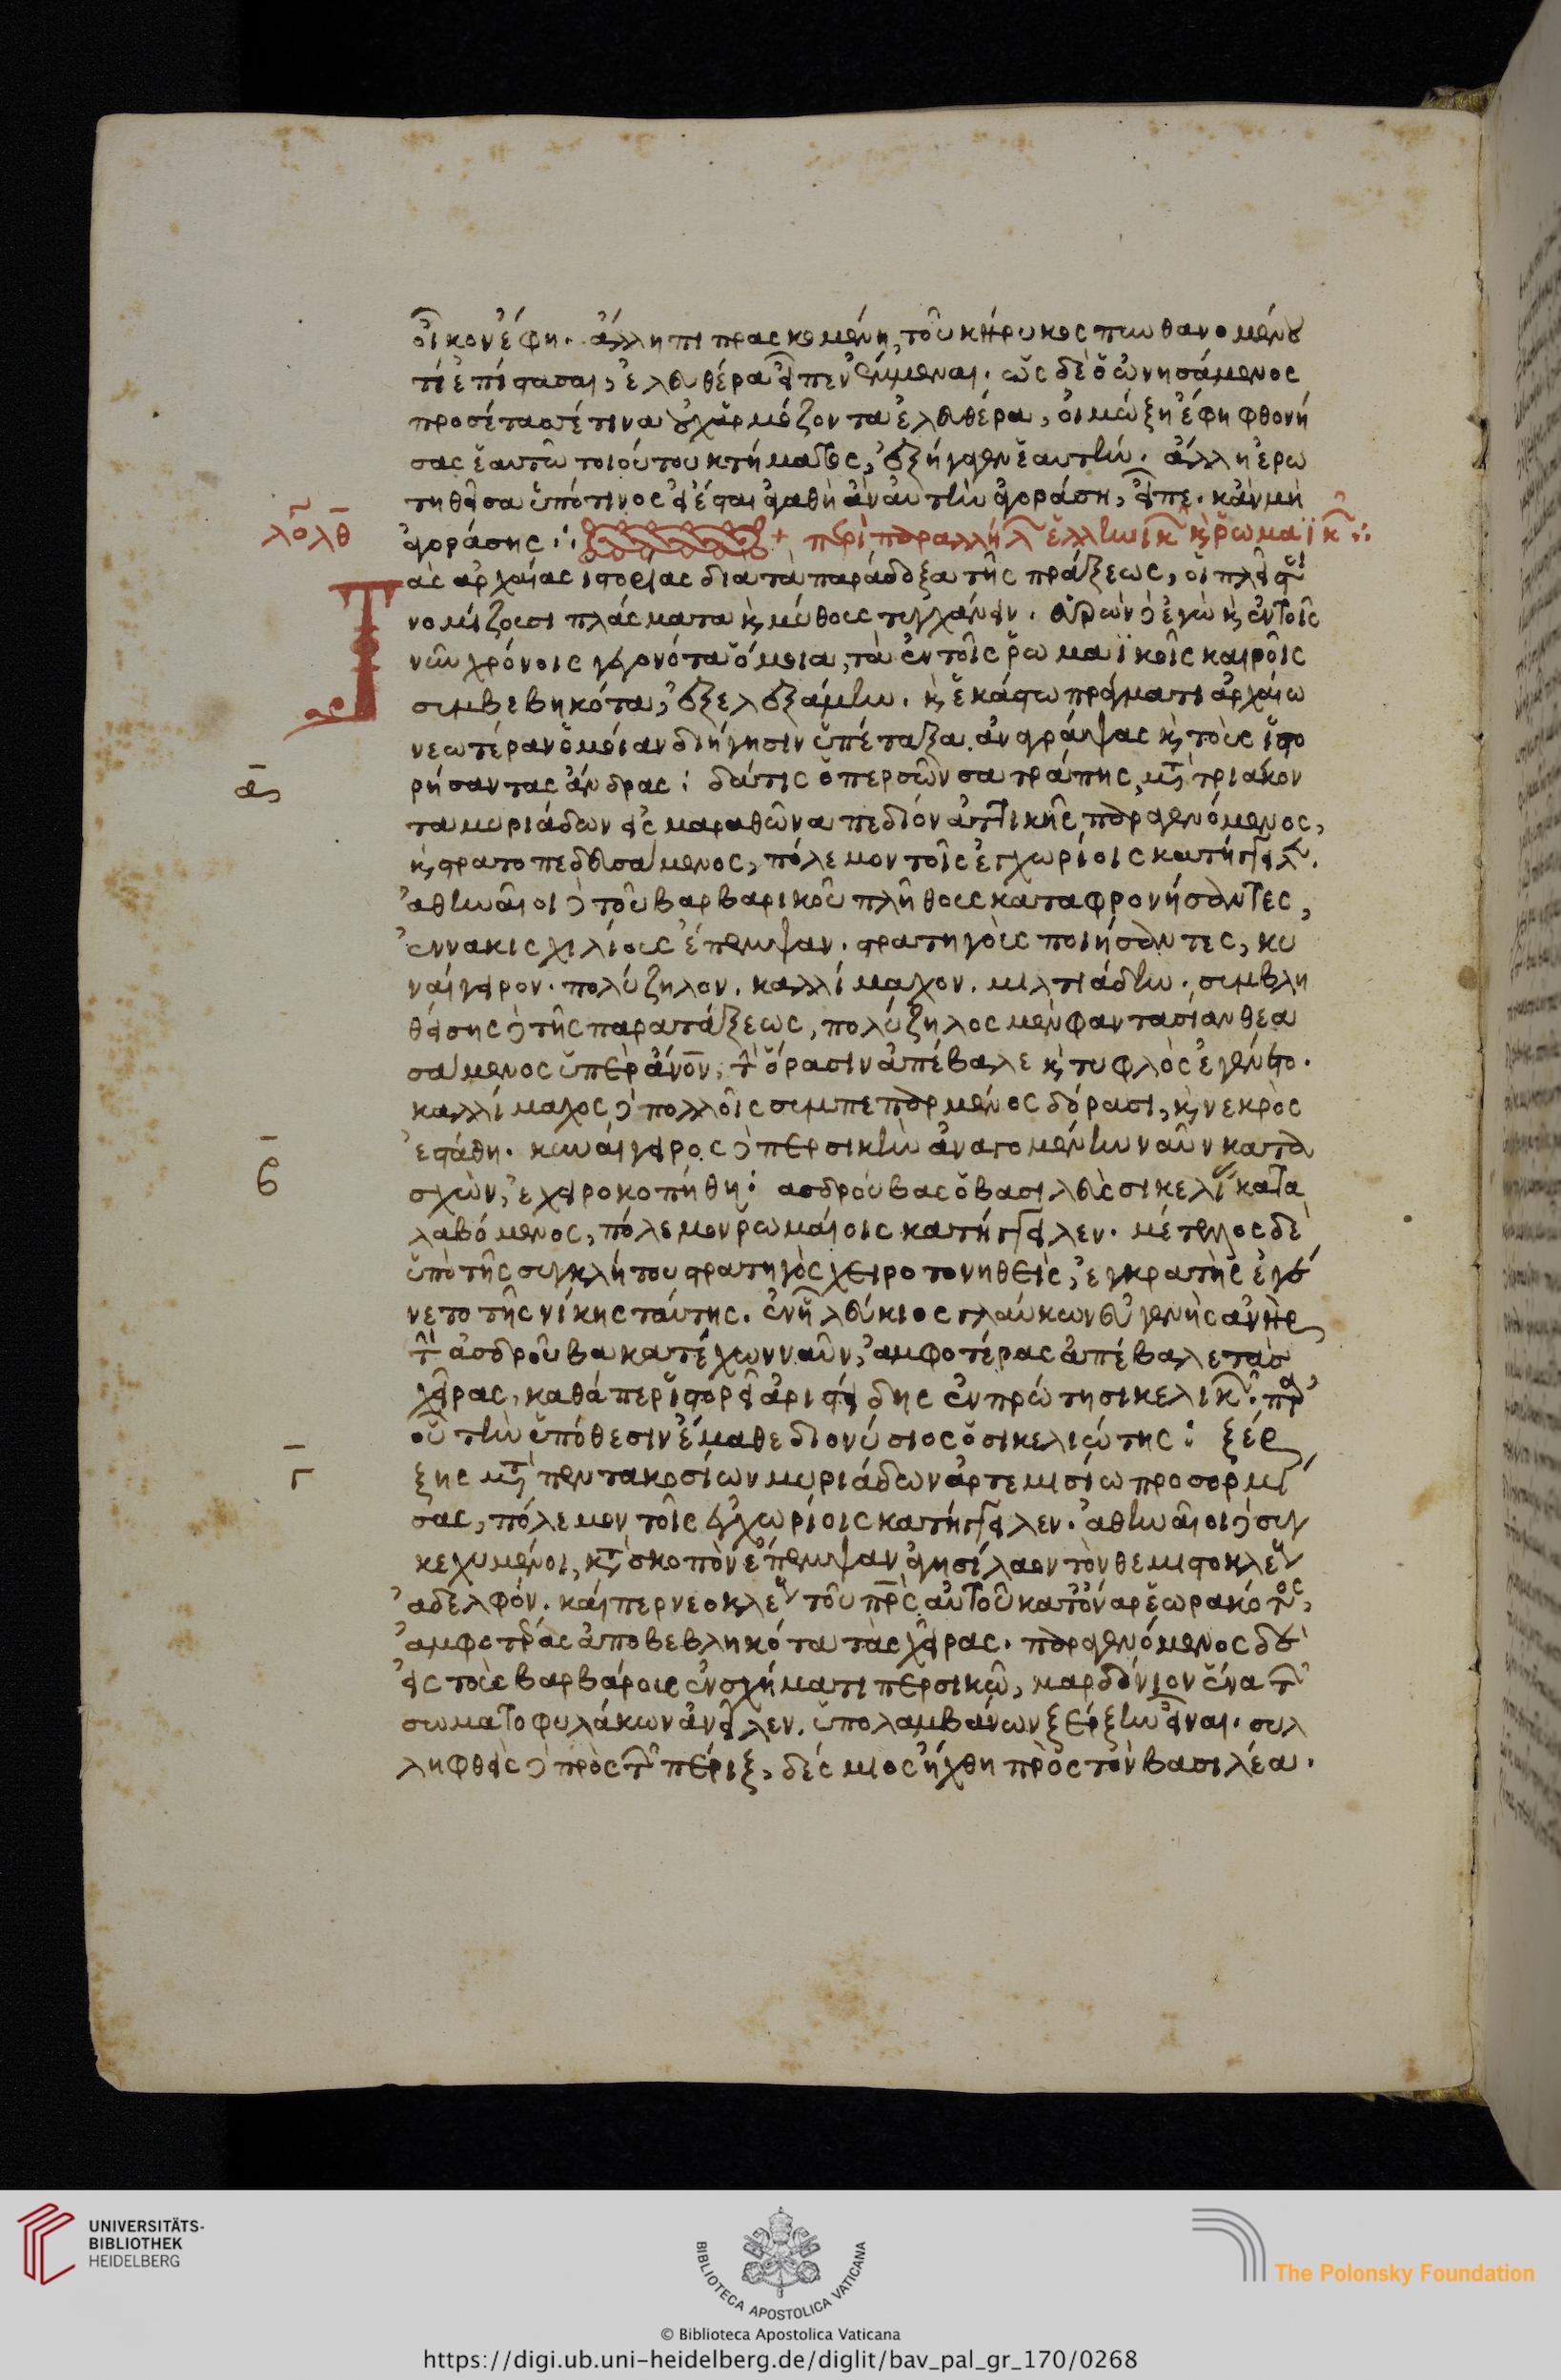 οἶκον ἔφη. ἄλλη πιπρασκομένη, τοῦ κήρυκος πυνθανομένου
τί ἐπίστασαι, ἐλευθέρα εἶπεν ἔμμεναι. ὡς δὲ ὁ ὠνησάμενος
προσέταττέ τινα οὐχ ἁρμόζοντα ἐλευθέρα, οἰμώξη ἔφη φθονή
σας ἑαυτῶ τοιούτου κτήματος, ἐξήγαγεν ἑαυτήν. ἄλλη ἐρω
τηθεῖσα ὑπό τινος εἰ ἔσται ἀγαθὴ ἂν αὐτὴν ἀγοράση, εἶπε. κἂν μὴ
λόγος λθ
ἀγοράσης :· + περὶ παραλλήλων ἑλληνικῶν καὶ ῥωμαϊκῶν :·
Τὰς ἀρχαίας ἱστορίας διὰ τὰ παράδοξα τῆς πράξεως, οἱ πλεῖστοι
νομίζουσι πλάσματα καὶ μύθους τυγχάνειν. εὑρὼν δὲ ἐγὼ καὶ ἐν τοῖς
νῦν χρόνοις γεγονότα ὅμοια, τὰ ἐν τοῖς ῥωμαϊκοῖς καιροῖς
συμβεβηκότα, ἐξελεξάμην. καὶ ἑκάστω πράγματι ἀρχαίω
νεωτέραν ὁμοίαν διήγησιν ὑπέταξα. ἀναγράψας καὶ τοὺς ἱστο
α
ρήσαντας ἄνδρας : δάτις ὁ περσῶν σατράπης, μετὰ τριάκον
τα μυριάδων εἰς μαραθῶνα πεδίον ἀττικῆς παραγενόμενος,
καὶ στρατοπεδευσάμενος, πόλεμον τοῖς ἐγχωρίοις κατήγγειλεν.
ἀθηναῖοι δὲ τοῦ βαρβαρικοῦ πλήθους καταφρονήσαντες,
ἐννακισχιλίους ἔπεμψαν. στρατηγοὺς ποιήσαντες, κυ
ναίγειρον. πολύζηλον. καλλίμαχον. μιλτιάδην. συμβλη
θείσης δὲ τῆς παρατάξεως, πολύζηλος μὲν φαντασίαν θεα
σάμενος ὑπὲρ ἄνον, τὴν ὅρασιν ἀπέβαλε καὶ τυφλὸς ἐγένετο.
καλλίμαχος δὲ πολλοῖς συμπεπαρμένος δόρασι, καὶ νεκρὸς
ἐστάθη. κυναίγειρος δὲ περσικὴν ἀναγομένην ναῦν κατα
β
σχὼν, ἐχειροκοπήθη : ἀσδρούβας ὁ βασιλεὺς σικελίαν κατα
λαβόμενος, πόλεμον ῥωμαίοις κατήγγειλεν. μέτελος δὲ
ὑπὸ τῆς συγκλήτου στρατηγὸς χειροτονηθεὶς, ἐγκρατὴς ἐγέ
νετο τῆς νίκης ταύτης. ἐν ᾗ λεύκιος γλαύκων εὐγενὴς ἀνὴρ
τὴν ἀσδρούβα κατέχων ναῦν, ἀμφοτέρας ἀπέβαλε τὰς
χεῖρας, καθάπερ ἱστορεῖ ἀριστείδης ἐν πρώτη σικελικῶν. παρ'
οὗ τὴν ὑπόθεσιν ἔμαθε διονύσιος ὁ σικελιώτης : ξέρ
γ
ξης μετὰ πεντακοσίων μυριάδων ἀρτεμισίω προσορμί
σας, πόλεμον τοῖς ἐγχωρίοις κατήγγειλεν. ἀθηναῖοι δὲ συγ
κεχυμένοι, κατάσκοπον ἔπεμψαν ἀγησίλαον τὸν θεμιστοκλέους
ἀδελφόν. καίπερ νεοκλέους τοῦ πρς αὐτοῦ κατ' ὄναρ ἑωρακότος,
ἀμφοτέρας ἀποβεβληκότα τὰς χεῖρας. παραγενόμενος δὲ
εἰς τοὺς βαρβάρους ἐν σχήματι περσικῶ, μαρδόνιον ἕνα τῶν
σωματοφυλάκων ἀνεῖλεν. ὑπολαμβάνων ξέρξην εἶναι. συλ
ληφθεὶς δὲ πρὸς τῶν πέριξ, δέσμιος ἤχθη πρὸς τὸν βασιλέα.
UNIVERSITÄTS-
BIBLIOTHEK
HEIDELBERG
BIBLIOTECA APOSTOLICA VATICANA
The Polonsky Foundation
© Biblioteca Apostolica Vaticana
https://digi.ub.uni-heidelberg.de/diglit/bav_pal_gr_170/0268